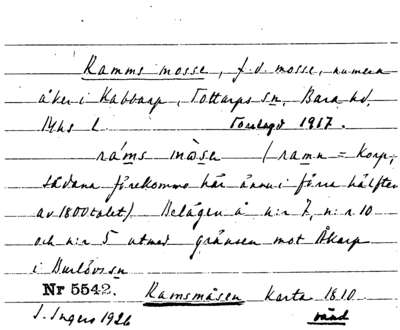 Ramms mosse, f.d. mosse, numera
åker i Kabbarp, Tottarps sn, Bara hd,
Mhs l. Torslegd 1917.
ráms màsen (ramn = korp,
sådana förekommo här ännu i förra hälften
av 1800talet). Belägen å n:r 7, n:r 10
och n:r 5 utmed gränsen mot Åkarp
i Burlövs sn
Nr 5542. Ramsmåsen karta 1810
I. Ingers 1926 vänd